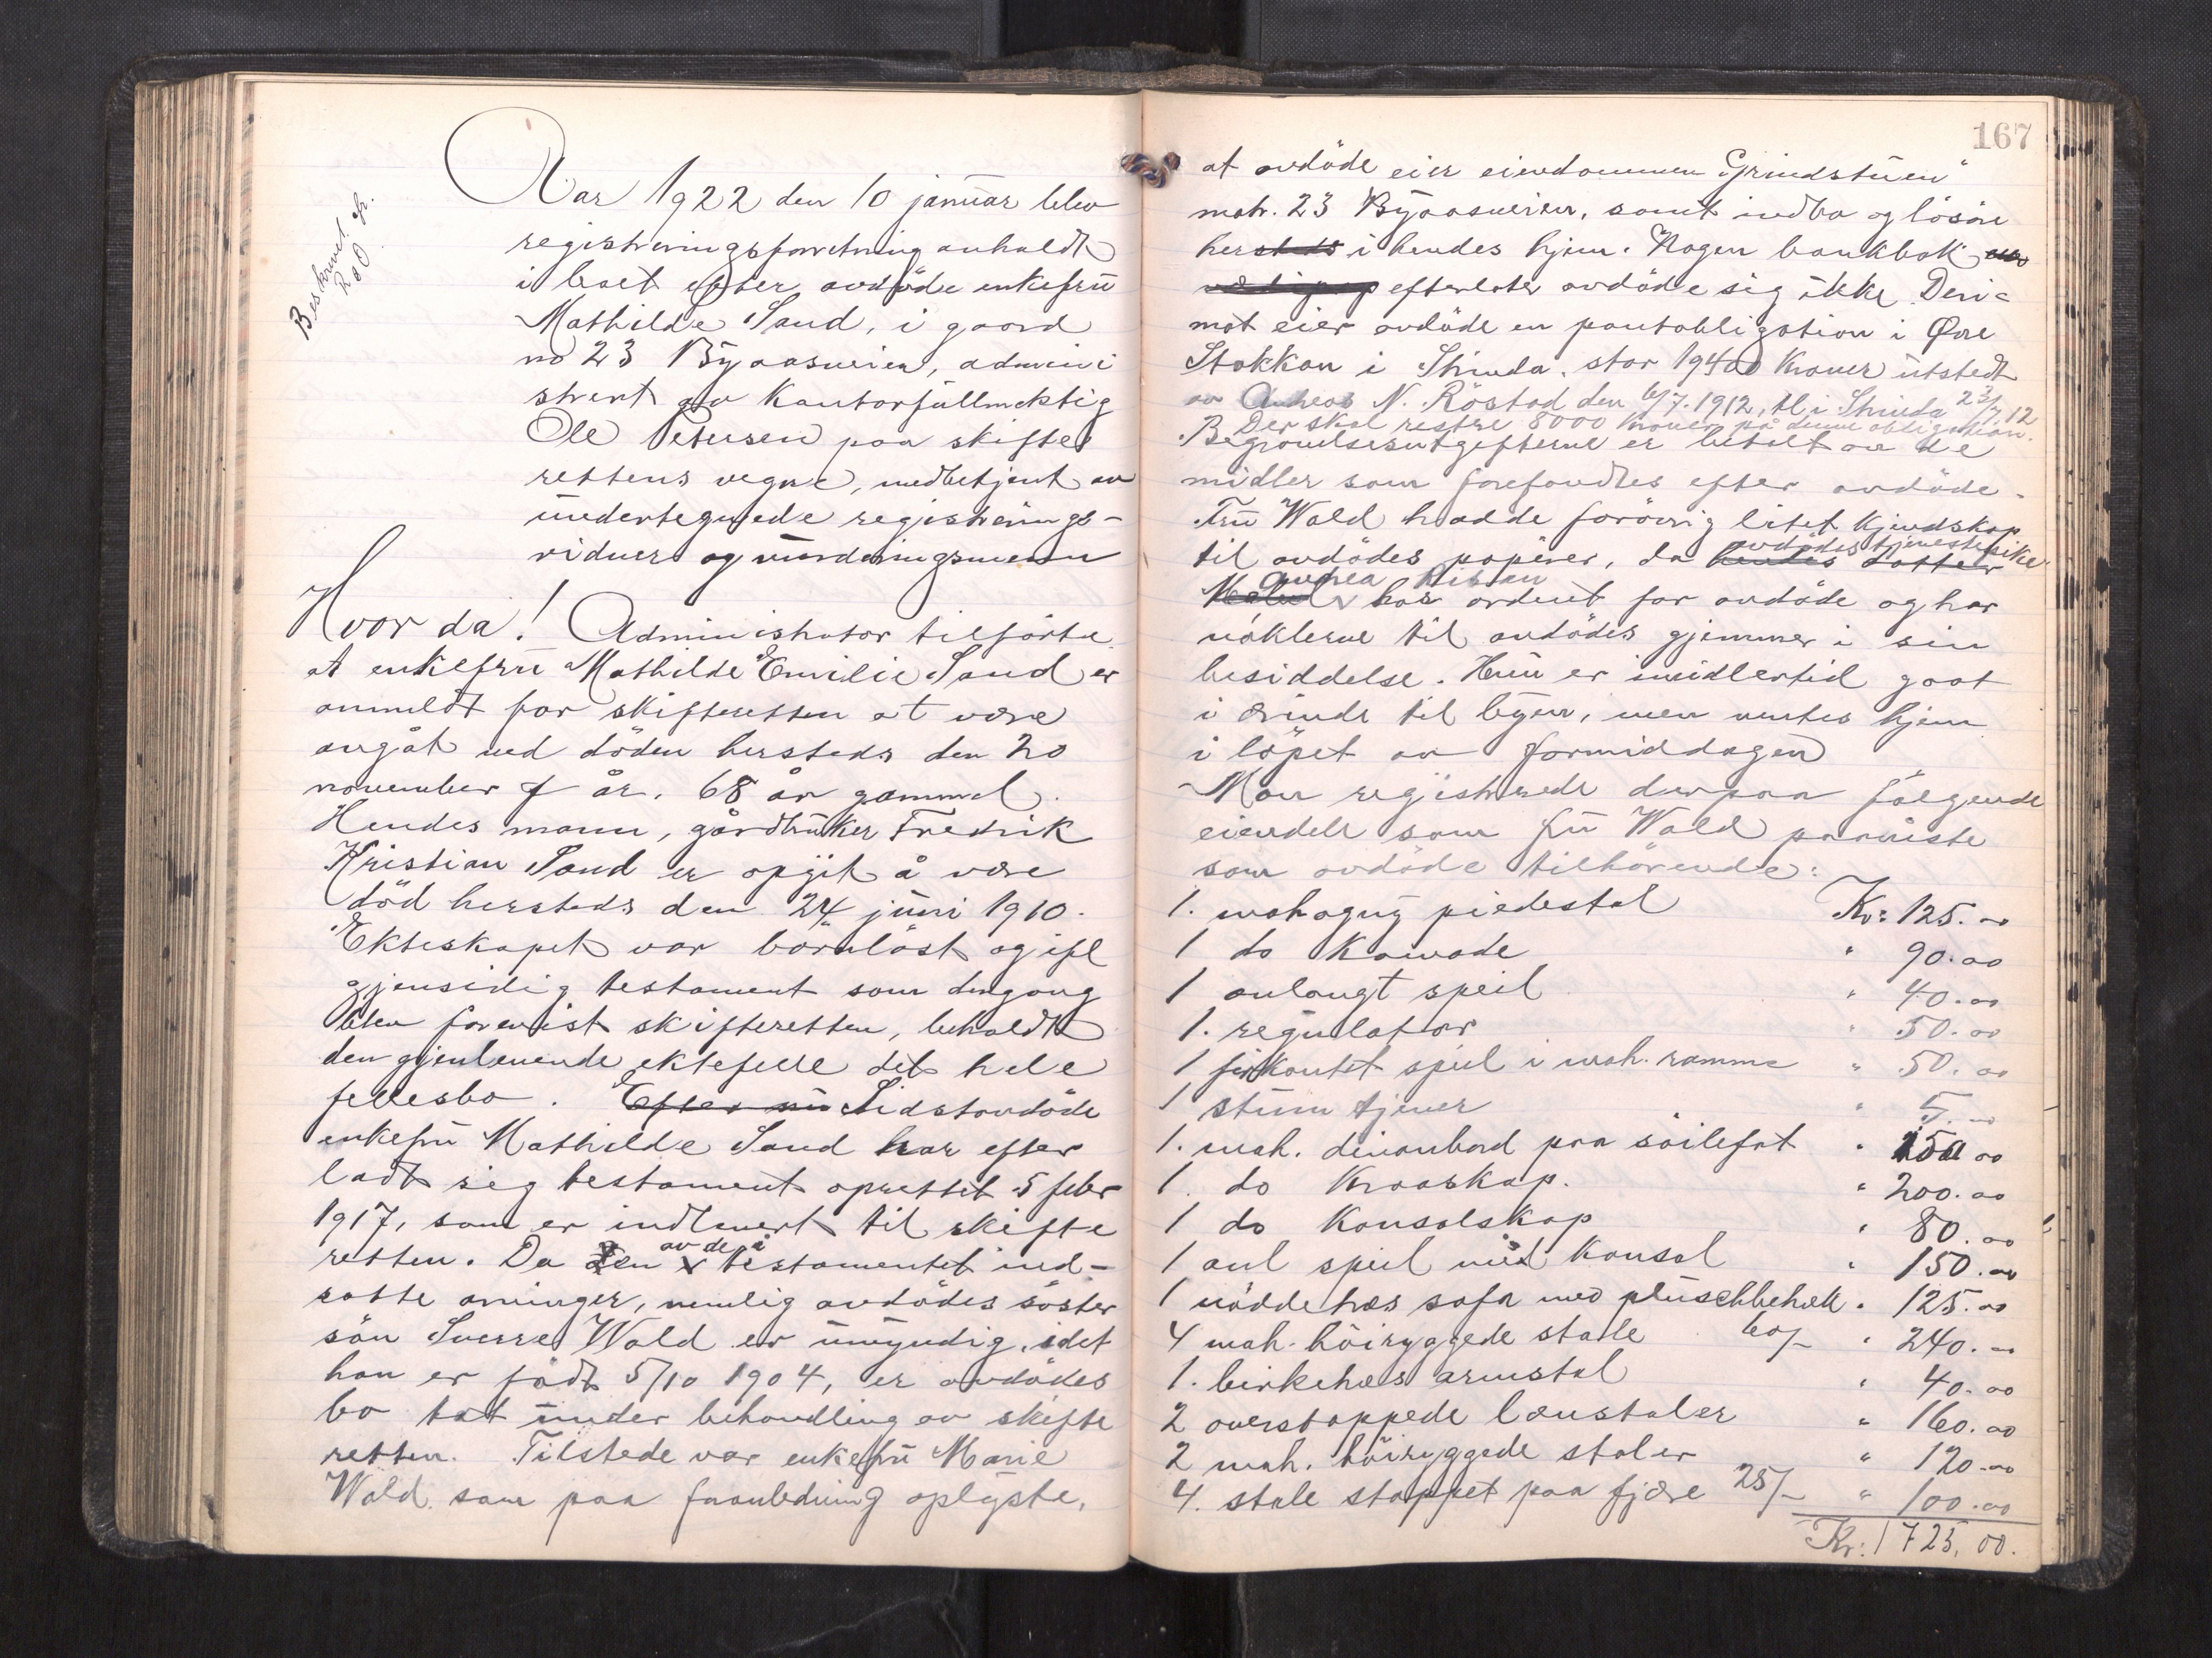 Beskrevet fr.
Aar 1922 den 10 januar blev
registreringsforretning anholdt
i boet efter avdöde enkefru
Mathilde Sand, i gaard
no 23 Byaasveien, admini
strert av Kontorfullmektig
Ole Petersen paa skifte
rettens vegne, medbetjent av
undertegnede registrerings-
vidner og vurderingsmenn
Hvor da! Administrator tilförte
at enkefru Mathilde Emilie Sand er
anmeldt for skifteretten at være
avgåt ved döden hersteds den 20
november f år. 68 år gammel.
Hendes mann, gårdbruker Fredrik
Kristian Sand er opgit å være
död hersteds den 24 juni 1910.
Ekteskapet var barnlöst og ifl
gjensidig testament som dengang
blev forevist skifteretten, beholdt
den gjenlevende ektefelle det hele
fellesbo. Efter nu Sidstavdöde
enkefru Mathilde Sand har efter
ladt sig testament oprettet 5 febr
1917, som er indlevert til skifte
retten. Da den av de i testamentet ind-
satte arvinger, nemlig avdödes söster
sön Sverre Wold er umyndig, idet
han er födt 5/10 1904, er avdödes
bo tat under behandling av skifte
retten. Tilstede var enkefru Marie
Wold som paa foranledning oplyste,
167
at avdöde eier eiendommen "Grindstuen"
matr. 23 Byaasveien, samt indbo og lösöre
hersteds i hendes hjem. Nogen bankbok
efterlater avdöde sig ikke. Deri-
mot eier avdöde en pantobligation i Øvre
Stokkan i Strinda, stor 19400 Kroner utstedt
av Andreas N. Röstad den 6/7. 1912, tl. i Strinda 23/7 12
Der skal restre 8000 kroner på denne obligation.
Begravelsesutgifterne er betalt av de
midler som forefandtes efter avdöde.
Fru Wold hadde forövrig litet kjendskap
til avdödes papirer, da hendes datter avdödes tjenestepike
Andrea har ordnet for avdöde og har
nöklerne til avdödes gjemmer i sin
besiddelse. Hun er imidlertid gaat
i ærinde til byen, men ventes hjem
i löpet av formiddagen
Man registrerede derpaa fölgende
eiendele som fru Wold paaviste
som avdöde tilhörende:
1. mahogny piedestal Kr: 125.00
1 do Komode " 90.00
1 avlangt speil " 40.00
1. regulator " 50.00
1 firkantet speil i mah. ramme " 50.00
1 stum tjener " 5.00
1. mah. divanbord paa söilefot " 150 00
1. do Kroaskap. " 200.00
1 do Konsolskap " 80.00
1 avl speil med Konsol " 150.00
1 nöddetræs sofa med plüschbetræk " 125.00
4 mah. höiryggede stole 60/- " 240.00
1. birketræs armstol " 40.00
2 overstoppede lænstoler " 160.00
2 mah. höiryggede stoler " 120.00
4. stole stoppet paa fjære 25/- " 100.00
Kr: 1725,00.